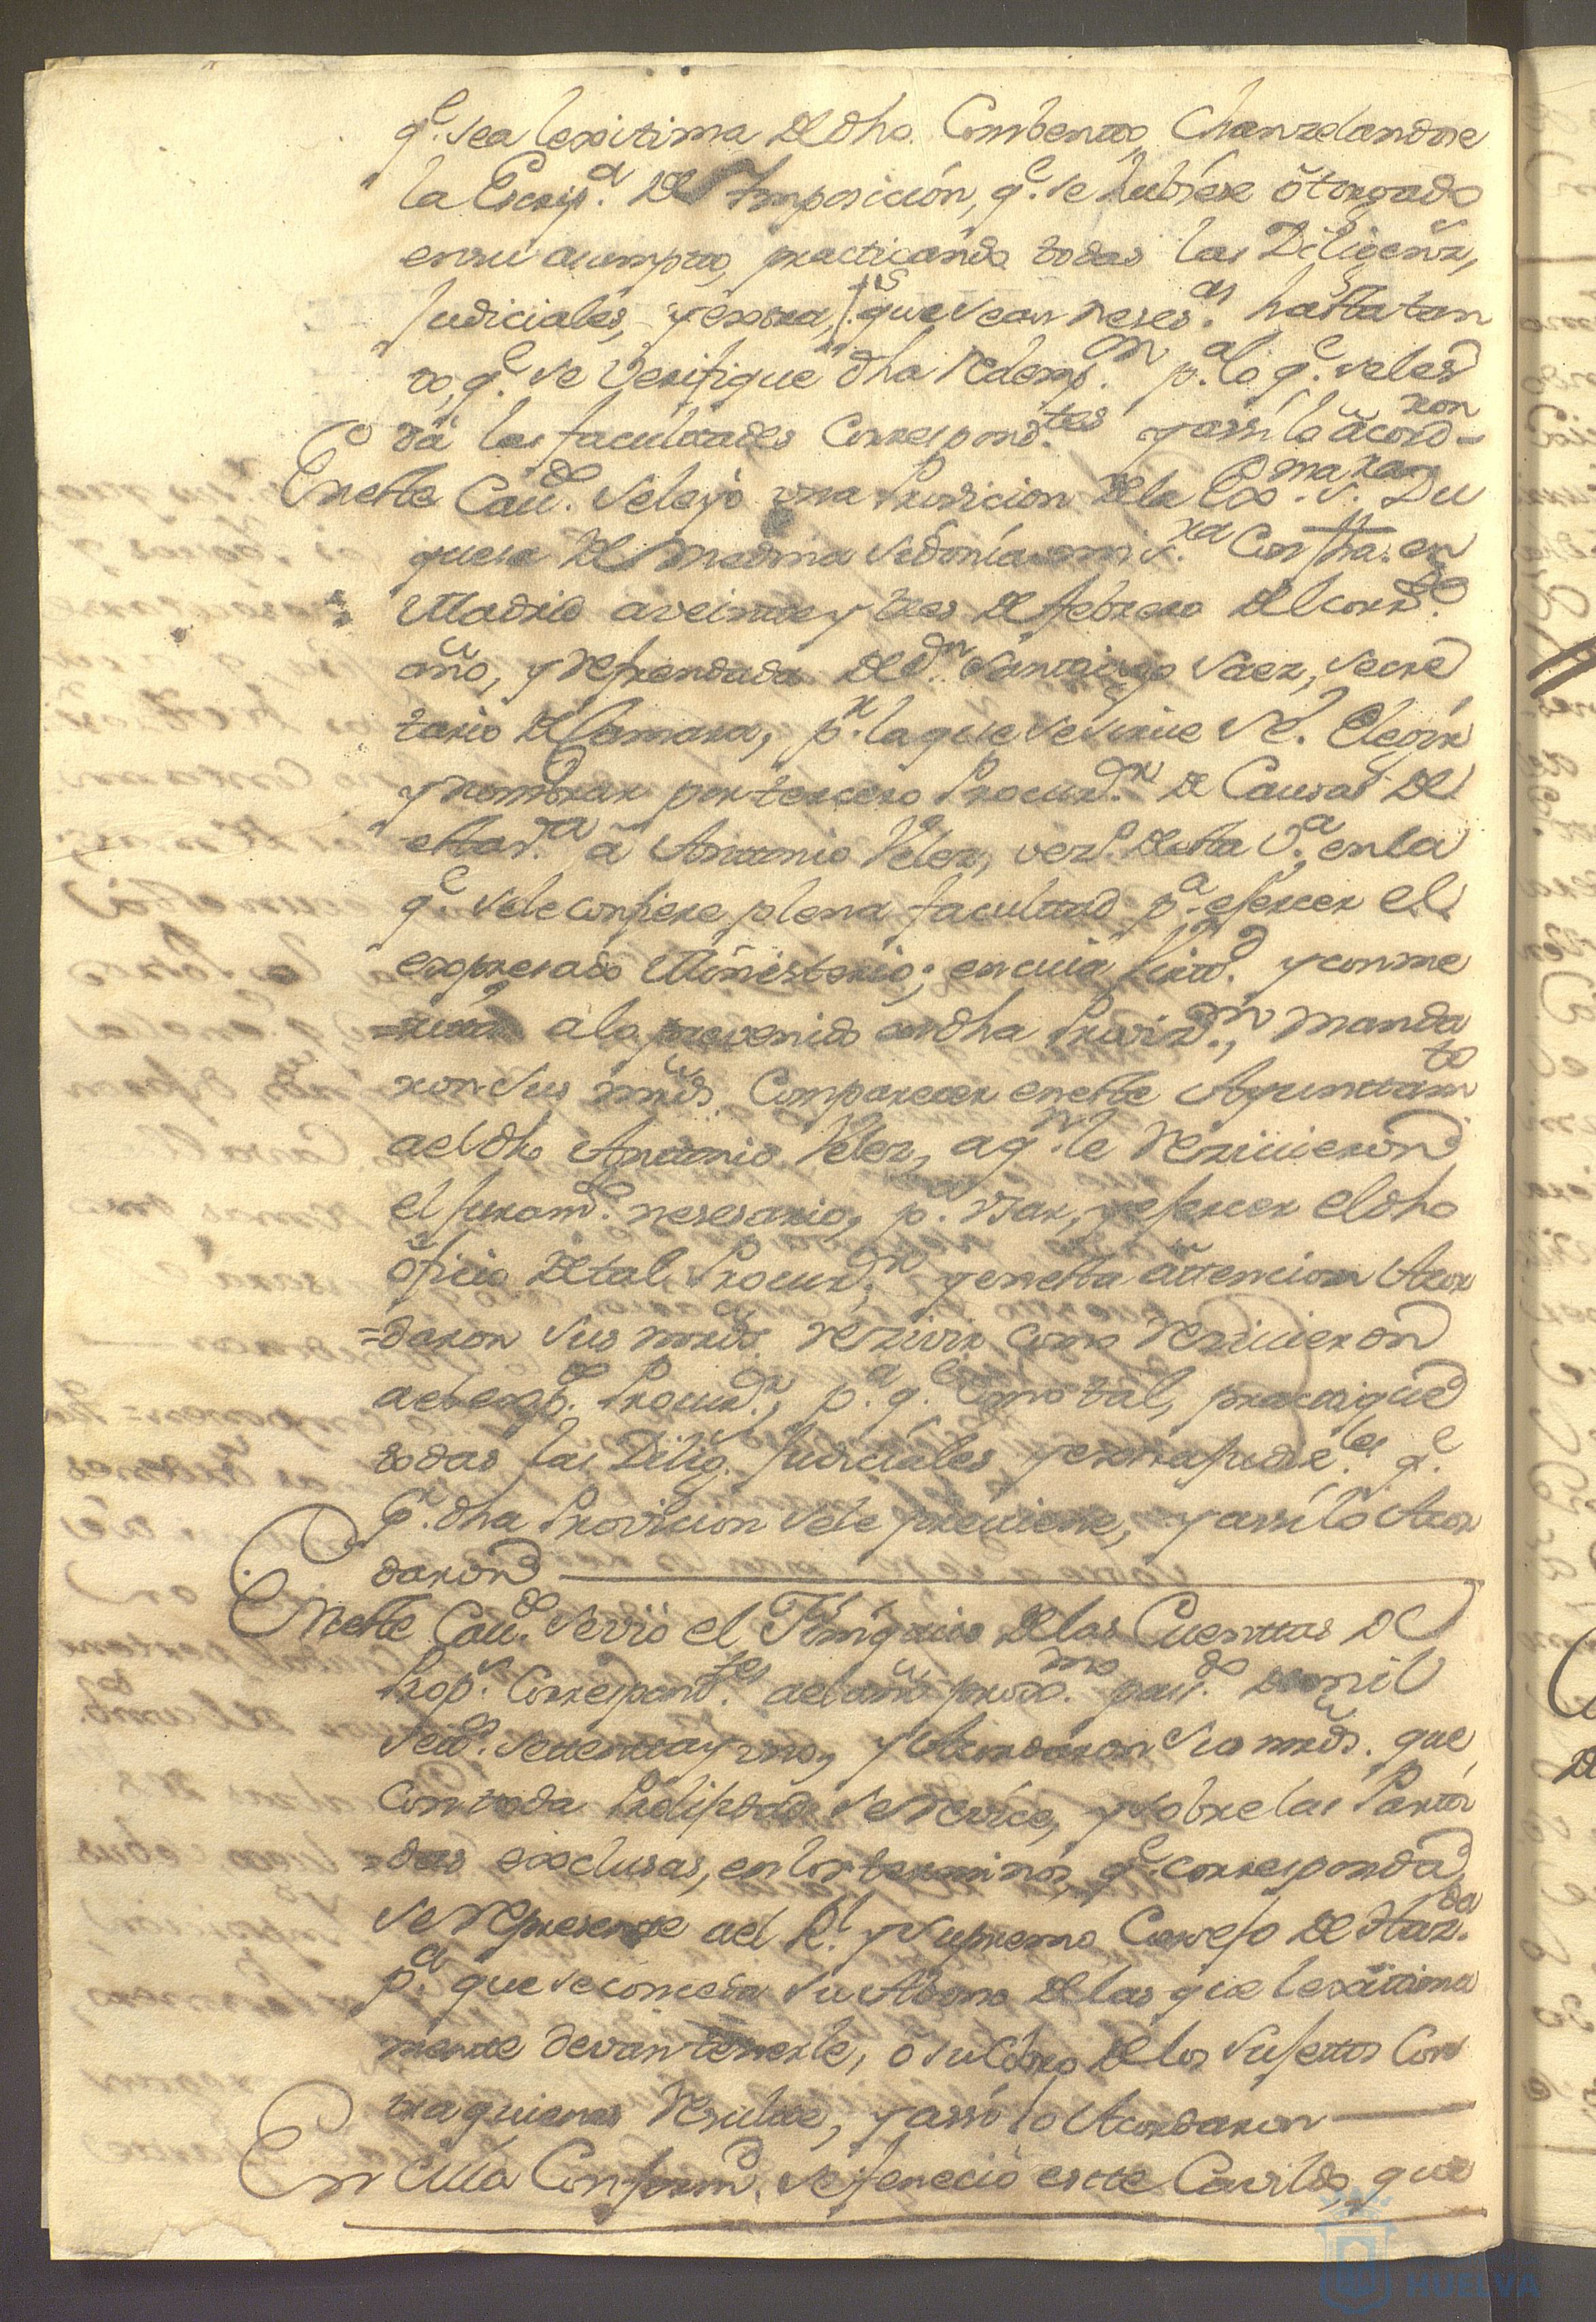 q.e sea lexitima de dho. Combento, Chanzelandose
la Escrip.a de Imposicion, q.e se hubiese otorgado
en su asumpto, practicando todas las Diligenz.s
Judiciales, y extra, que sean neses.as hasta tan
to, q.e se Verifique dha redemp.on p.a lo q.e se les
da las facultades Correspond.tes y assi lo acord-
ron
En este Cau.do se leyo una Provicion de la Ex.ma S.ra Du
quesa de Medina Sidonia mi S.ra Con fha. en
Madrid a veinte y tres de febrero del corr.te
año, y refrendada de D.n Santiago Saez, secre
tario de Camara, p.r la que se sirue S.E. Elegir
y nombrar por tercero Procurad.r de Causas de
esta V.a a Antonio Velez, vez.o de esta V.a, en la
q.e se le confiere plena facultad p.a ejercer el
expresado Ministerio; en cuia virtd. y conme
a lo prevenido en dha Proviz.on, manda
ron sus mrds. Comparecer en este Ayuntam.to
ael dho Antonio Velez, a q.n le reziuieron
el juram.to nesesario, p.a usar, y ejercer el dho
oficio de tal Procurd.r y en esta attencion Acor
=daron sus mrds. rezivir como reziuieron
ael exp.do Procurd.r, p.a q.e como tal, practique
todas las Dilig. Judiciales y extrajudic.les q.e
p.r dha Provicion se le preuiene, y assi lo Acor
daron
En este Cau.do se vio el Finiquito de las Cuentas de
Prop.s Correspont.tes ael año proxo.mo pas.do de mil
setz.s setenta y uno, y Acordaron sus mrds. que
con toda Prolijidad se revice, y sobre las Parti
=das exclusas, en los terminos, q.e corresponda
se represente ael R.l y Supremo Consejo de Haz.da
p.a que se conceda su Abono de las que lexitima
mente devan tenerle, o su Cobro de los Sujetos Con
tra quienes resulte, y assi lo Acordaron
En cuia Conformd. se fenecio este Cavildo, que
HUELVA